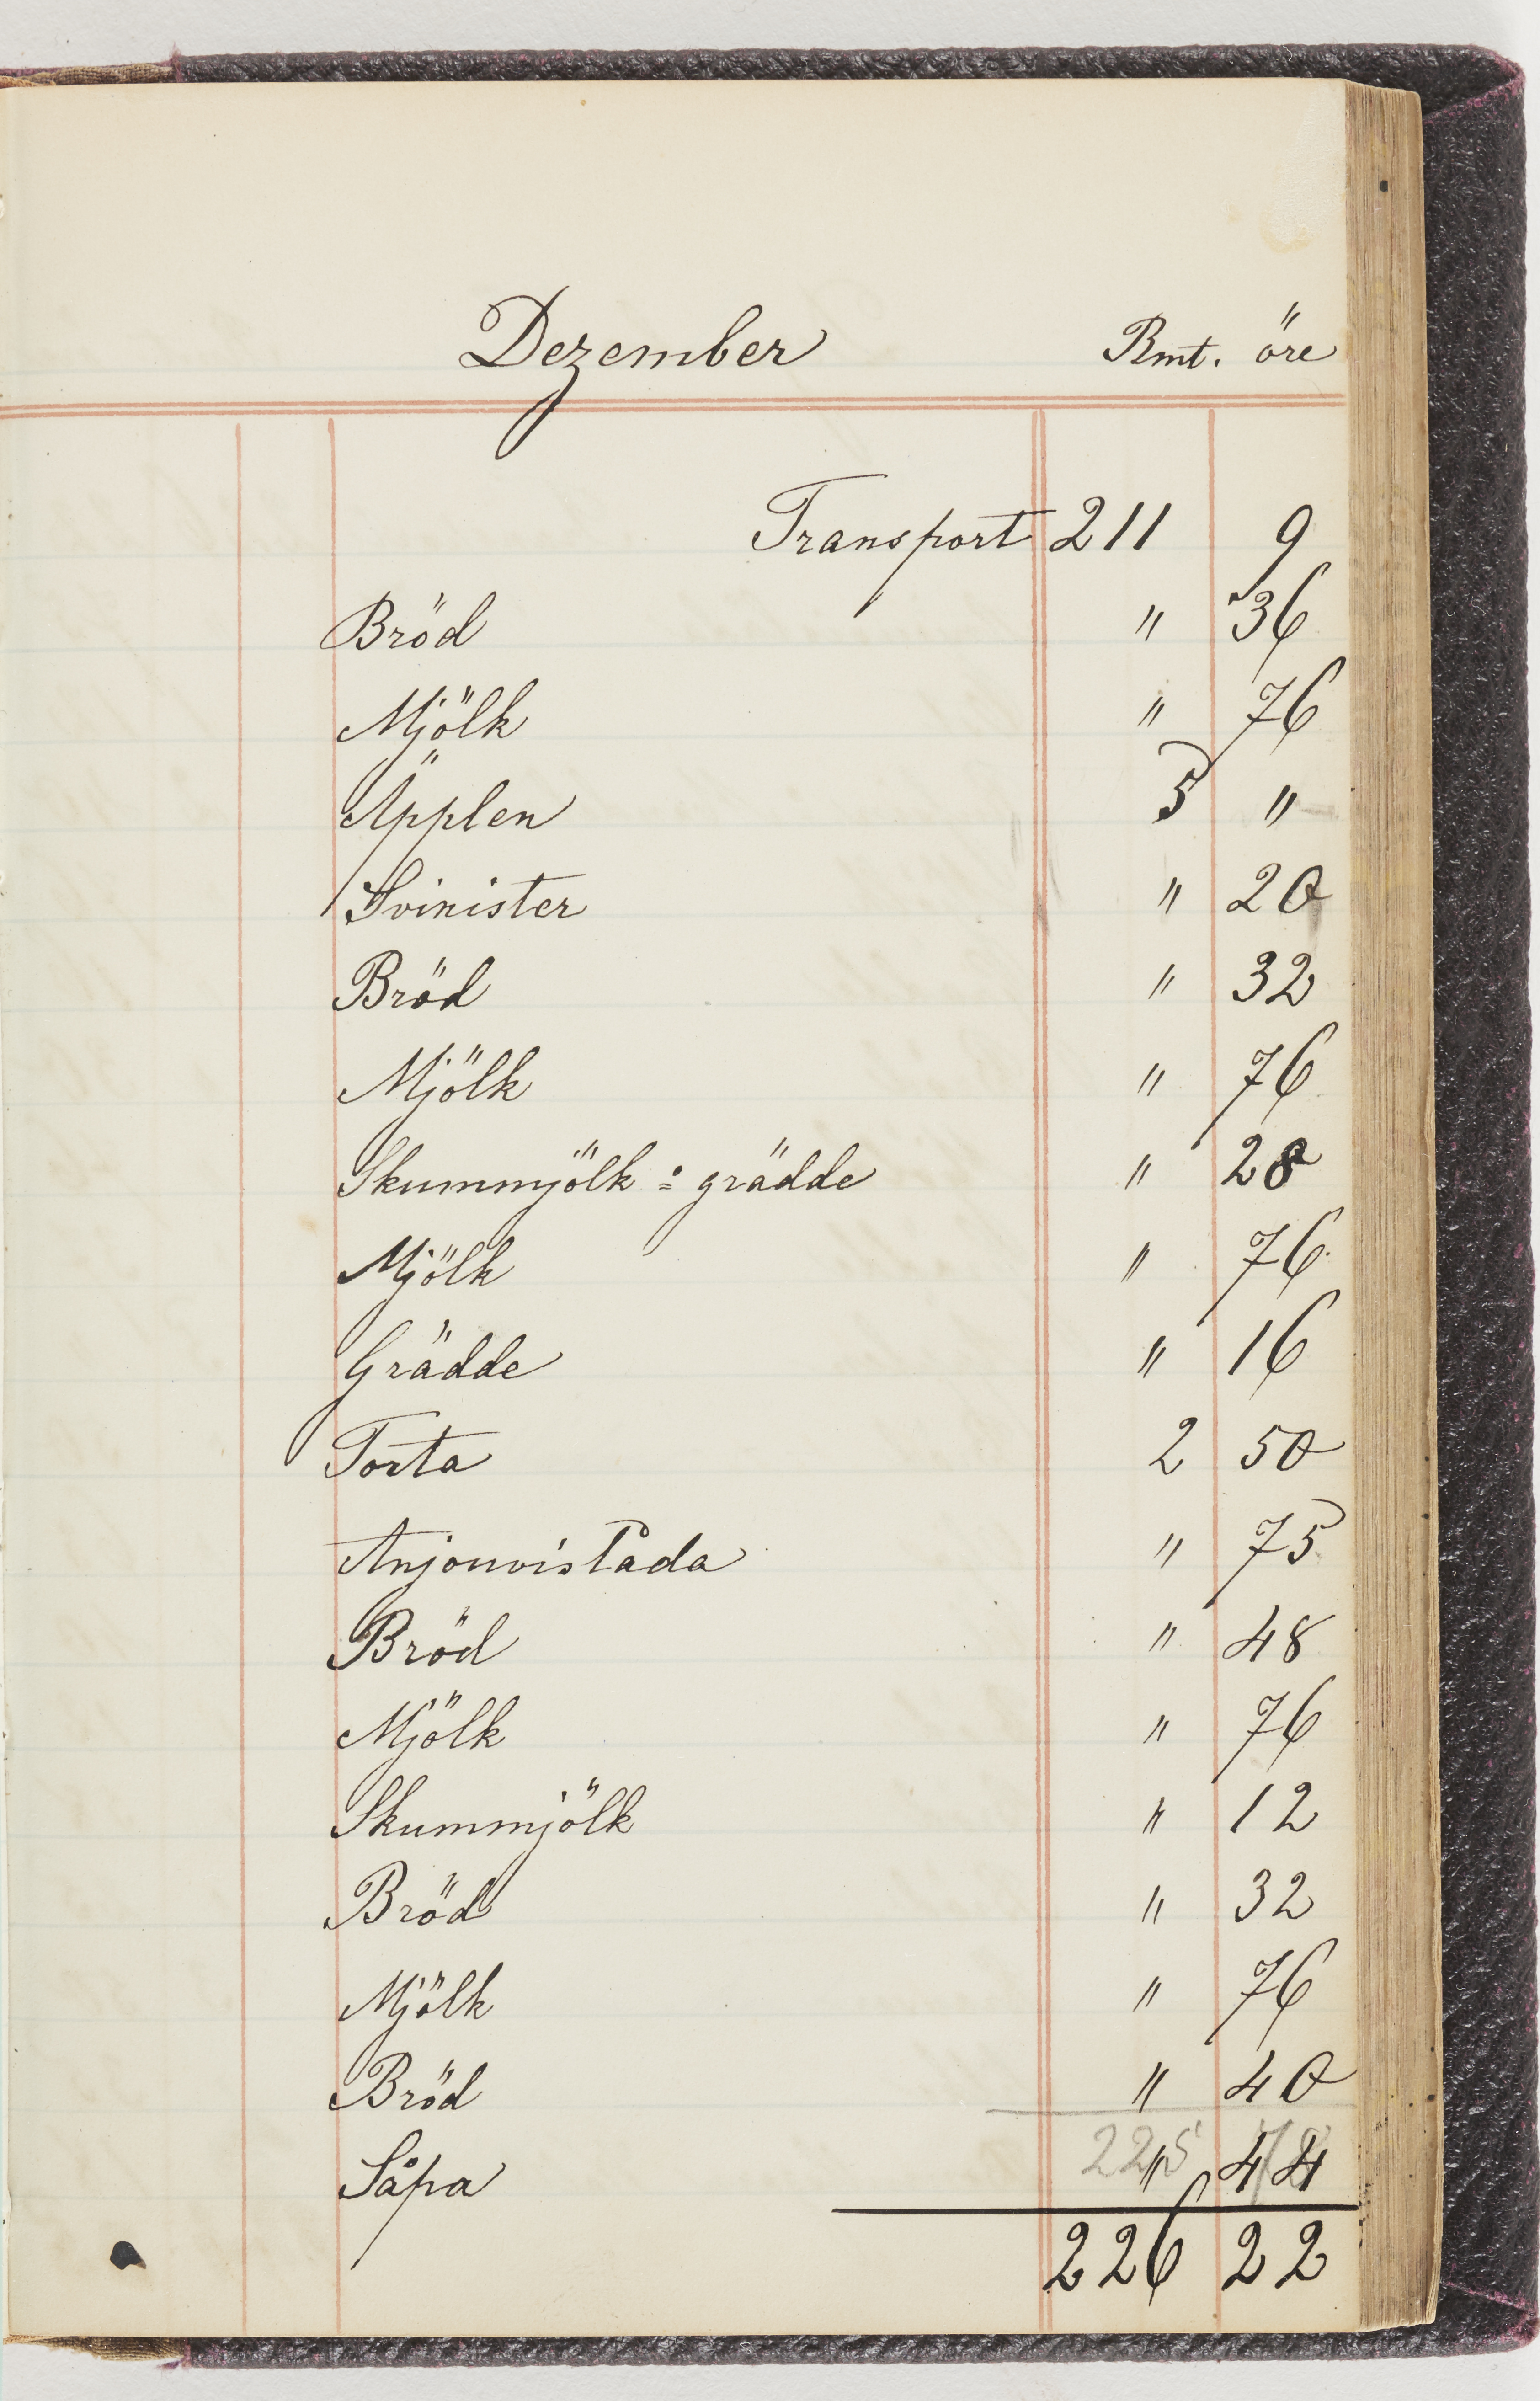 Dezember Rmt. öre
Transport 211 9
Bröd " 36
Mjölk " 76
Äpplen 5 "
Svinister " 20
Bröd " 32
Mjölk " 76
Skummjölk = grädde " 28
Mjölk " 76
Grädde " 16
Torta 2 50
Anjouvislåda " 75
Bröd " 48
Mjölk " 76
Skummjölk " 12
Bröd " 32
Mjölk " 76
Bröd " 40
225 78
Såpa " 44
226 22